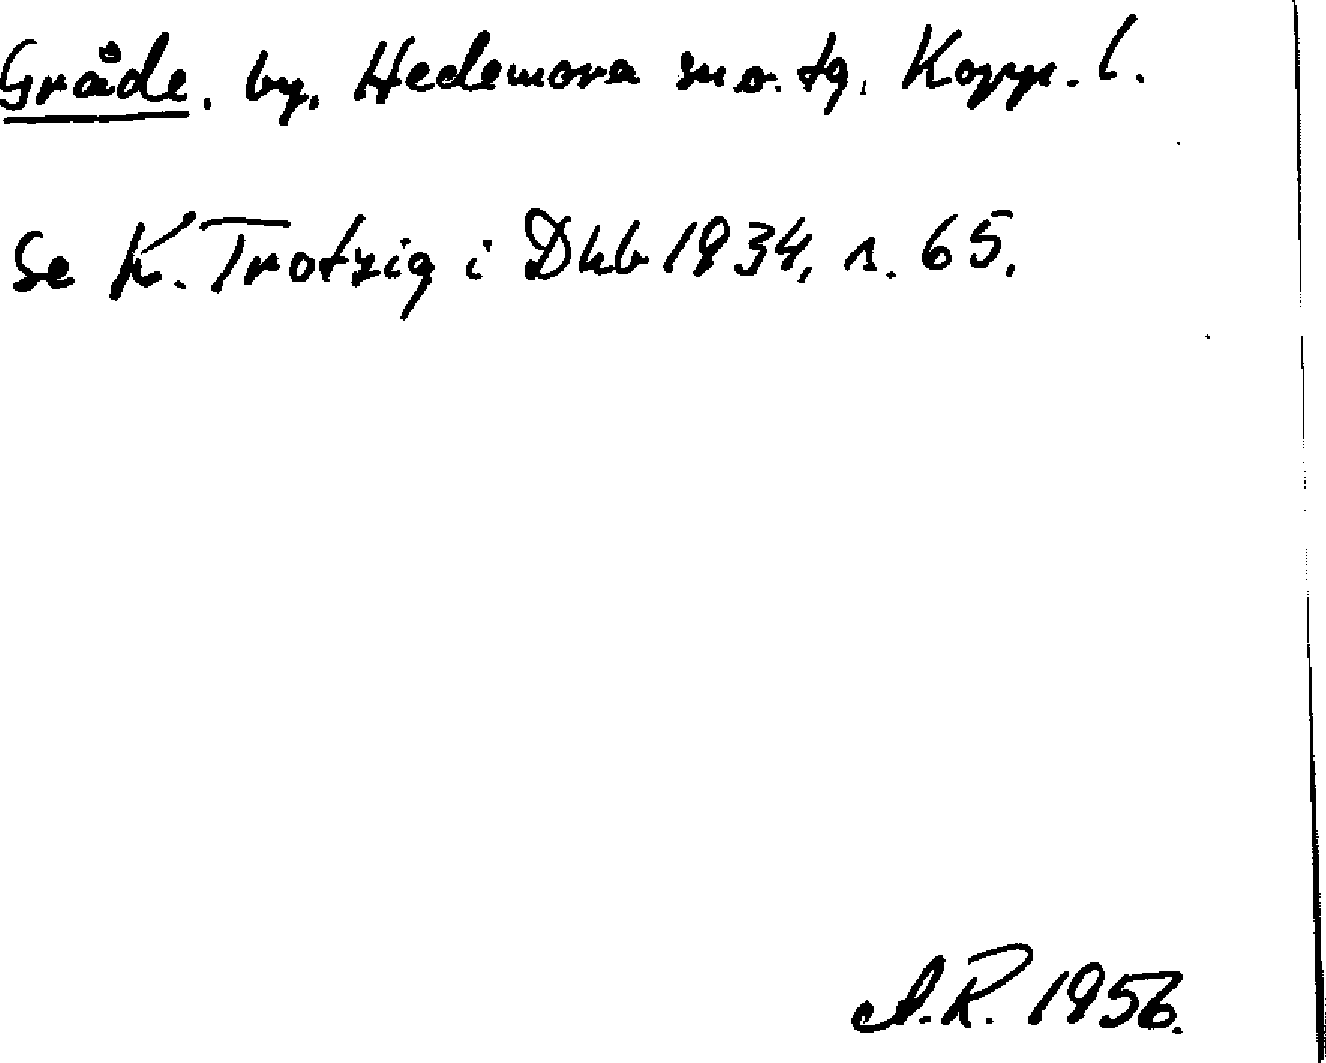 Gråde, by, Hedemora sn o. tg, Kopp. l.
Se K. Trotzig i Dhb 1934, s. 65.
A.R. 1956.